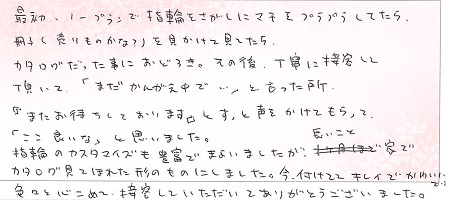 最初、ノープランで指輪をさがしにマチをプラプラしてたら、
冊子(売りものかな?)を見かけて見てたら、
カタログだった事におどろき。その後、丁寧に接客して
頂いて、「まだかんがえ中で…」と言った所、
「またお待ちしております」とすっと声をかけてもらって、
「ここ良いな」と思いました。
指輪のカスタマイズも豊富でまよいましたが、長いこと家で
カタログ見てほれた形のものにしました。今、付けててキレイでかわいいです…
色々と心こめて、接客していただいてありがとうございました。